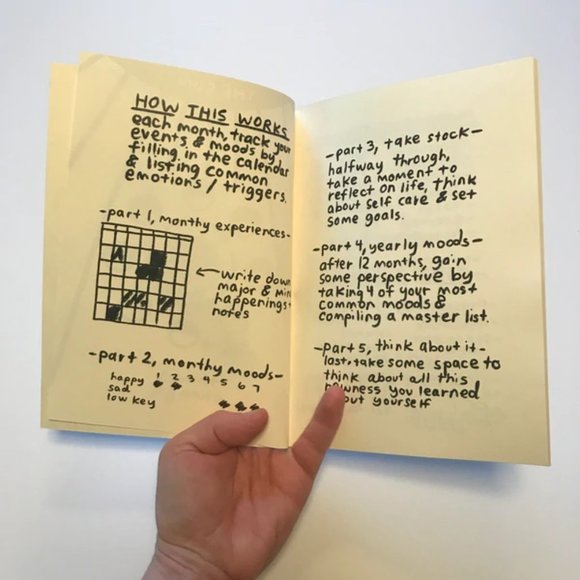 HOW THIS WORKS
each month, track your
events & moods by
filling in the calendar
& listing common
emotions / triggers.
-part 1, monthy experiences-
A
write down
major &
happenings
notes
-part 2, monthy moods-
1 2 3 4 5 6 7
happy
sad
low key
-part 3, take stock-
halfway through,
take a moment to
reflect on life, think
about self care & set
some goals.
-part 4, yearly moods-
after 12 months, gain
some perspective by
taking 4 of your most
common moods &
compiling a master list.
-part 5, think about it-
last, take some space to
think about all this
you learned
yourself